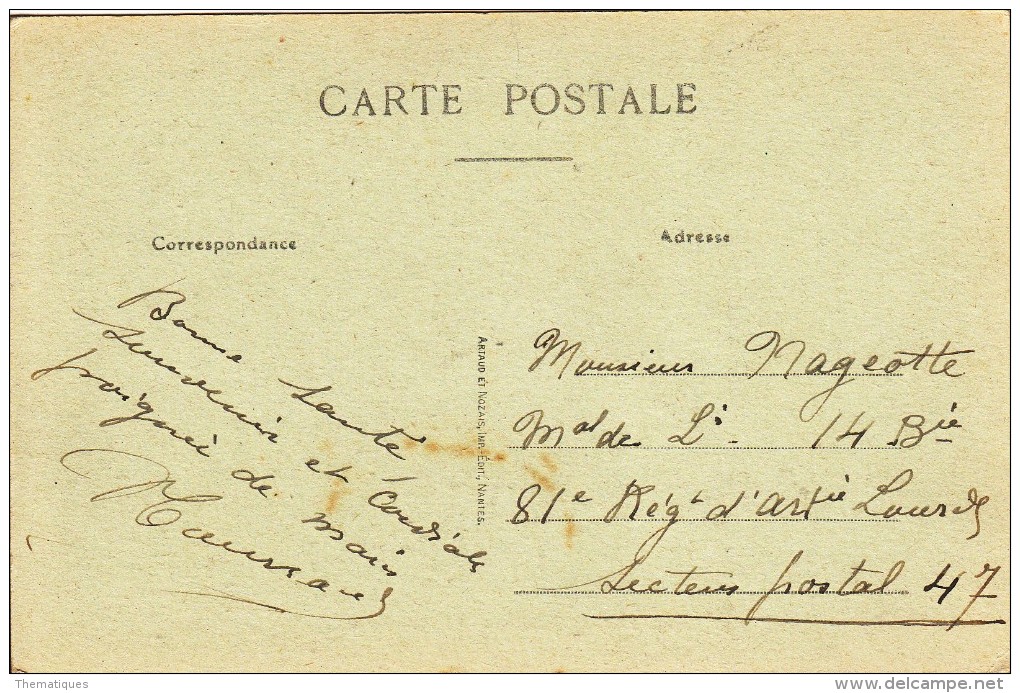 CARTE POSTALE
Correspondance
Adresse
Bonne santé
souvenir et cordiale
poignée de main
ARTAUD ET NOZAIS, IMP.-ÉDIT., NANTES.
Monsieur Nageotte
Mal de Lis 14 Bie
81e Régt d'Artie Lourde
Secteur postal 47
Thematiques
www.delcampe.net